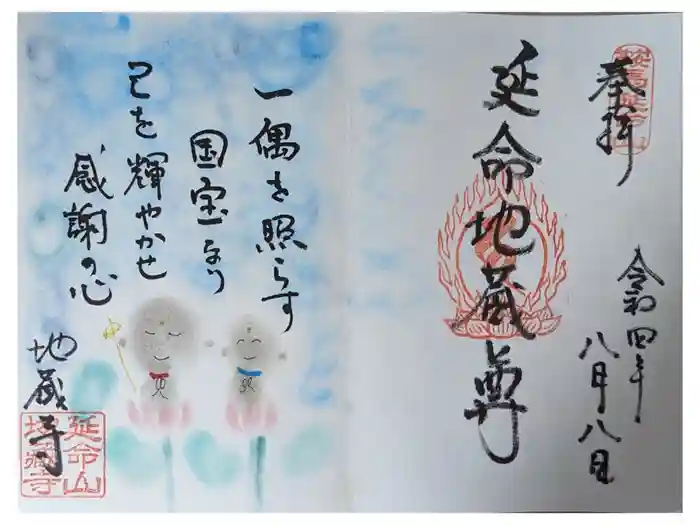 奉拝
令和四年
八月八日
延命地蔵尊
一偶を照らす
国宝なり
己を輝やかせ
感謝の心
地蔵寺
延命山
地蔵寺